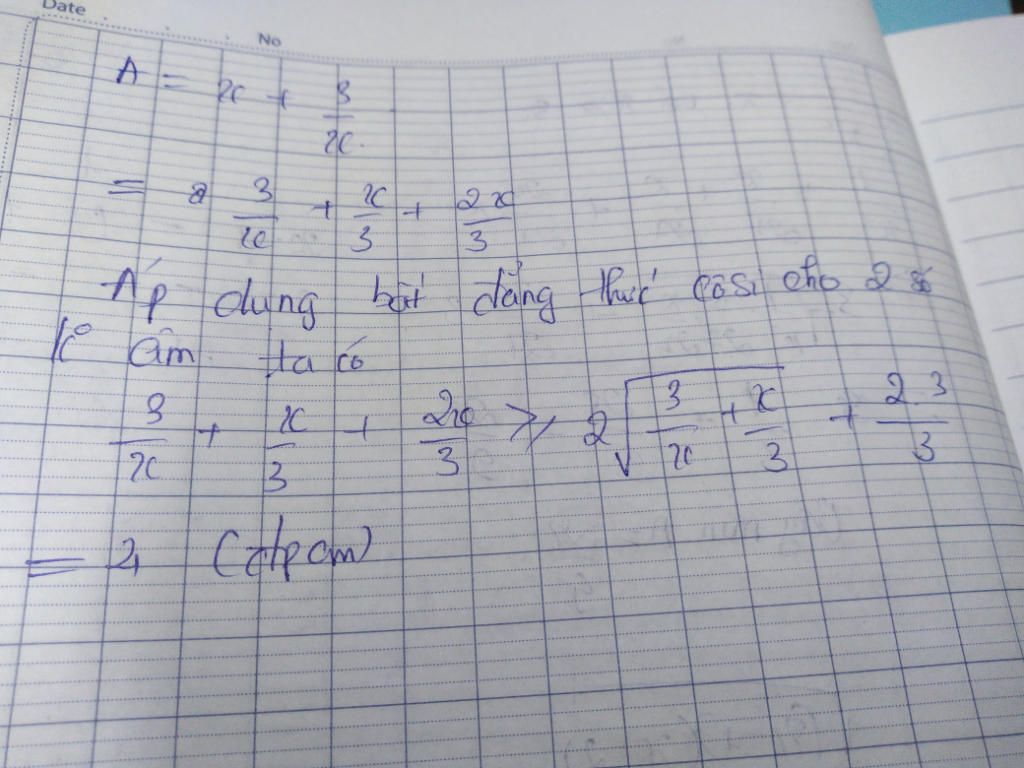 Date
No
A = x + 3/x
= 3/x + x/3 + 2x/3
Áp dụng bất đẳng thức cosi cho 2 số
k° âm ta có
3/x + x/3 + 2x/3 ≥ 2√(3/x + x/3) + 2.3/3
= 4 (đpcm)